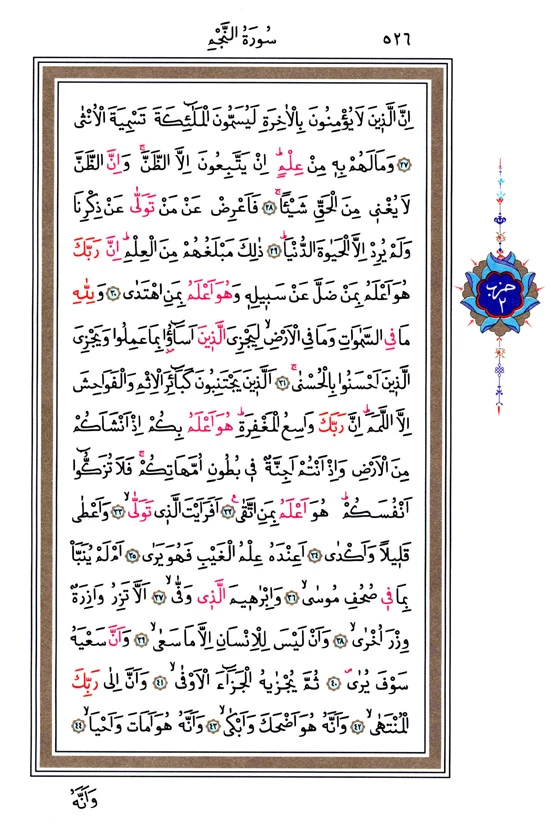 ٥٢٦
سُورَةُ النَّجْمِ
اِنَّ الَّذٖينَ لَا يُؤْمِنُونَ بِالْاٰخِرَةِ لَيُسَمُّونَ الْمَلٰٓئِكَةَ تَسْمِيَةَ الْاُنْثٰى
﴿٢٧﴾ وَمَا لَهُمْ بِهٖ مِنْ عِلْمٍۜ اِنْ يَتَّبِعُونَ اِلَّا الظَّنَّۚ وَاِنَّ الظَّنَّ
لَا يُغْنٖى مِنَ الْحَقِّ شَيْـًٔاۚ ﴿٢٨﴾ فَاَعْرِضْ عَنْ مَنْ تَوَلّٰى عَنْ ذِكْرِنَا
وَلَمْ يُرِدْ اِلَّا الْحَيٰوةَ الدُّنْيَاۜ ﴿٢٩﴾ ذٰلِكَ مَبْلَغُهُمْ مِنَ الْعِلْمِۜ اِنَّ رَبَّكَ
هُوَ اَعْلَمُ بِمَنْ ضَلَّ عَنْ سَبٖيلِهٖ وَهُوَ اَعْلَمُ بِمَنِ اهْتَدٰى ﴿٣٠﴾ وَلِلّٰهِ
مَا فِى السَّمٰوَاتِ وَمَا فِى الْاَرْضِۙ لِيَجْزِىَ الَّذٖينَ اَسَٓاؤُ۫ا بِمَا عَمِلُوا وَيَجْزِىَ
الَّذٖينَ اَحْسَنُوا بِالْحُسْنٰىۚ ﴿٣١﴾ اَلَّذٖينَ يَجْتَنِبُونَ كَبَٓائِرَ الْاِثْمِ وَالْفَوَاحِشَ
اِلَّا اللَّمَمَۜ اِنَّ رَبَّكَ وَاسِعُ الْمَغْفِرَةِۜ هُوَ اَعْلَمُ بِكُمْ اِذْ اَنْشَاَكُمْ
مِنَ الْاَرْضِ وَاِذْ اَنْتُمْ اَجِنَّةٌ فٖى بُطُونِ اُمَّهَاتِكُمْۚ فَلَا تُزَكُّٓوا
اَنْفُسَكُمْۜ هُوَ اَعْلَمُ بِمَنِ اتَّقٰىۚ ﴿٣٢﴾ اَفَرَاَيْتَ الَّذٖى تَوَلّٰىۙ ﴿٣٣﴾ وَاَعْطٰى
قَلٖيلًا وَاَكْدٰى ﴿٣٤﴾ اَعِنْدَهُ عِلْمُ الْغَيْبِ فَهُوَ يَرٰى ﴿٣٥﴾ اَمْ لَمْ يُنَبَّاْ
بِمَا فٖى صُحُفِ مُوسٰىۙ ﴿٣٦﴾ وَاِبْرٰهٖيمَ الَّذٖى وَفّٰىۙ ﴿٣٧﴾ اَلَّا تَزِرُ وَازِرَةٌ
وِزْرَ اُخْرٰىۙ ﴿٣٨﴾ وَاَنْ لَيْسَ لِلْاِنْسَانِ اِلَّا مَا سَعٰىۙ ﴿٣٩﴾ وَاَنَّ سَعْيَهُ
سَوْفَ يُرٰى ﴿٤٠﴾ ثُمَّ يُجْزٰيهُ الْجَزَٓاءَ الْاَوْفٰىۙ ﴿٤١﴾ وَاَنَّ اِلٰى رَبِّكَ
الْمُنْتَهٰىۙ ﴿٤٢﴾ وَاَنَّهُ هُوَ اَضْحَكَ وَاَبْكٰىۙ ﴿٤٣﴾ وَاَنَّهُ هُوَ اَمَاتَ وَاَحْيَاۙ ﴿٤٤﴾
وَاَنَّهُ
حزب
٢